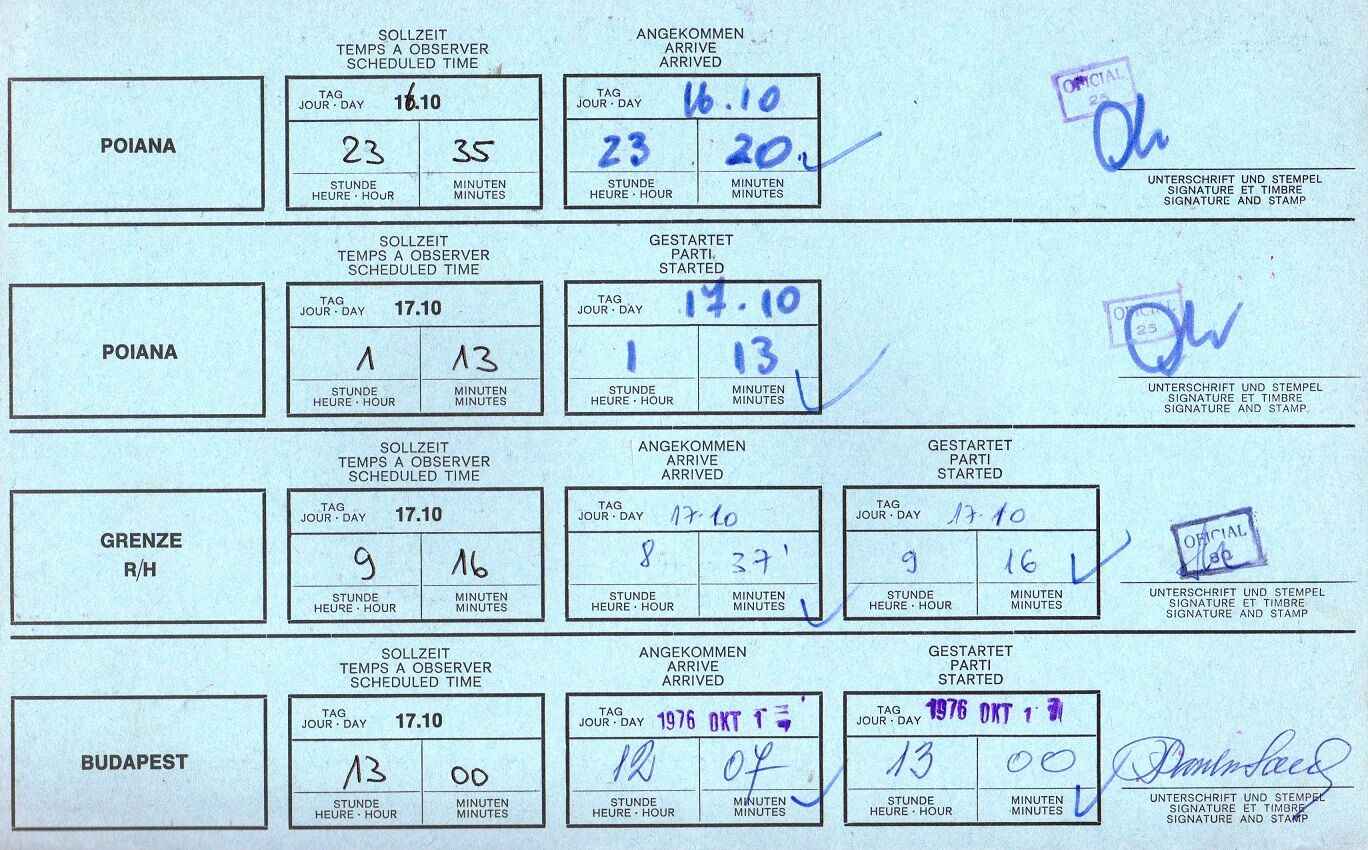 SOLLZEIT
TEMPS A OBSERVER
SCHEDULED TIME
ANGEKOMMEN
ARRIVE
ARRIVED
POIANA
TAG
JOUR · DAY 16.10
23 35
STUNDE
HEURE · HOUR
MINUTEN
MINUTES
TAG
JOUR · DAY 16.10
23 20
STUNDE
HEURE · HOUR
MINUTEN
MINUTES
OFICIAL
25
UNTERSCHRIFT UND STEMPEL
SIGNATURE ET TIMBRE
SIGNATURE AND STAMP
SOLLZEIT
TEMPS A OBSERVER
SCHEDULED TIME
GESTARTET
PARTI
STARTED
POIANA
TAG
JOUR · DAY 17.10
1 13
STUNDE
HEURE · HOUR
MINUTEN
MINUTES
TAG
JOUR · DAY 17.10
1 13
STUNDE
HEURE · HOUR
MINUTEN
MINUTES
OFICIAL
25
UNTERSCHRIFT UND STEMPEL
SIGNATURE ET TIMBRE
SIGNATURE AND STAMP
SOLLZEIT
TEMPS A OBSERVER
SCHEDULED TIME
ANGEKOMMEN
ARRIVE
ARRIVED
GESTARTET
PARTI
STARTED
GRENZE
R/H
TAG
JOUR · DAY 17.10
9 16
STUNDE
HEURE · HOUR
MINUTEN
MINUTES
TAG
JOUR · DAY 17.10
8 37'
STUNDE
HEURE · HOUR
MINUTEN
MINUTES
TAG
JOUR · DAY 17.10
9 16
STUNDE
HEURE · HOUR
MINUTEN
MINUTES
OFICIAL
UNTERSCHRIFT UND STEMPEL
SIGNATURE ET TIMBRE
SIGNATURE AND STAMP
SOLLZEIT
TEMPS A OBSERVER
SCHEDULED TIME
ANGEKOMMEN
ARRIVE
ARRIVED
GESTARTET
PARTI
STARTED
BUDAPEST
TAG
JOUR · DAY 17.10
13 00
STUNDE
HEURE · HOUR
MINUTEN
MINUTES
TAG
JOUR · DAY 1976 OKT 1
12 07
STUNDE
HEURE · HOUR
MINUTEN
MINUTES
TAG
JOUR · DAY 1976 OKT 1 7
13 00
STUNDE
HEURE · HOUR
MINUTEN
MINUTES
UNTERSCHRIFT UND STEMPEL
SIGNATURE ET TIMBRE
SIGNATURE AND STAMP